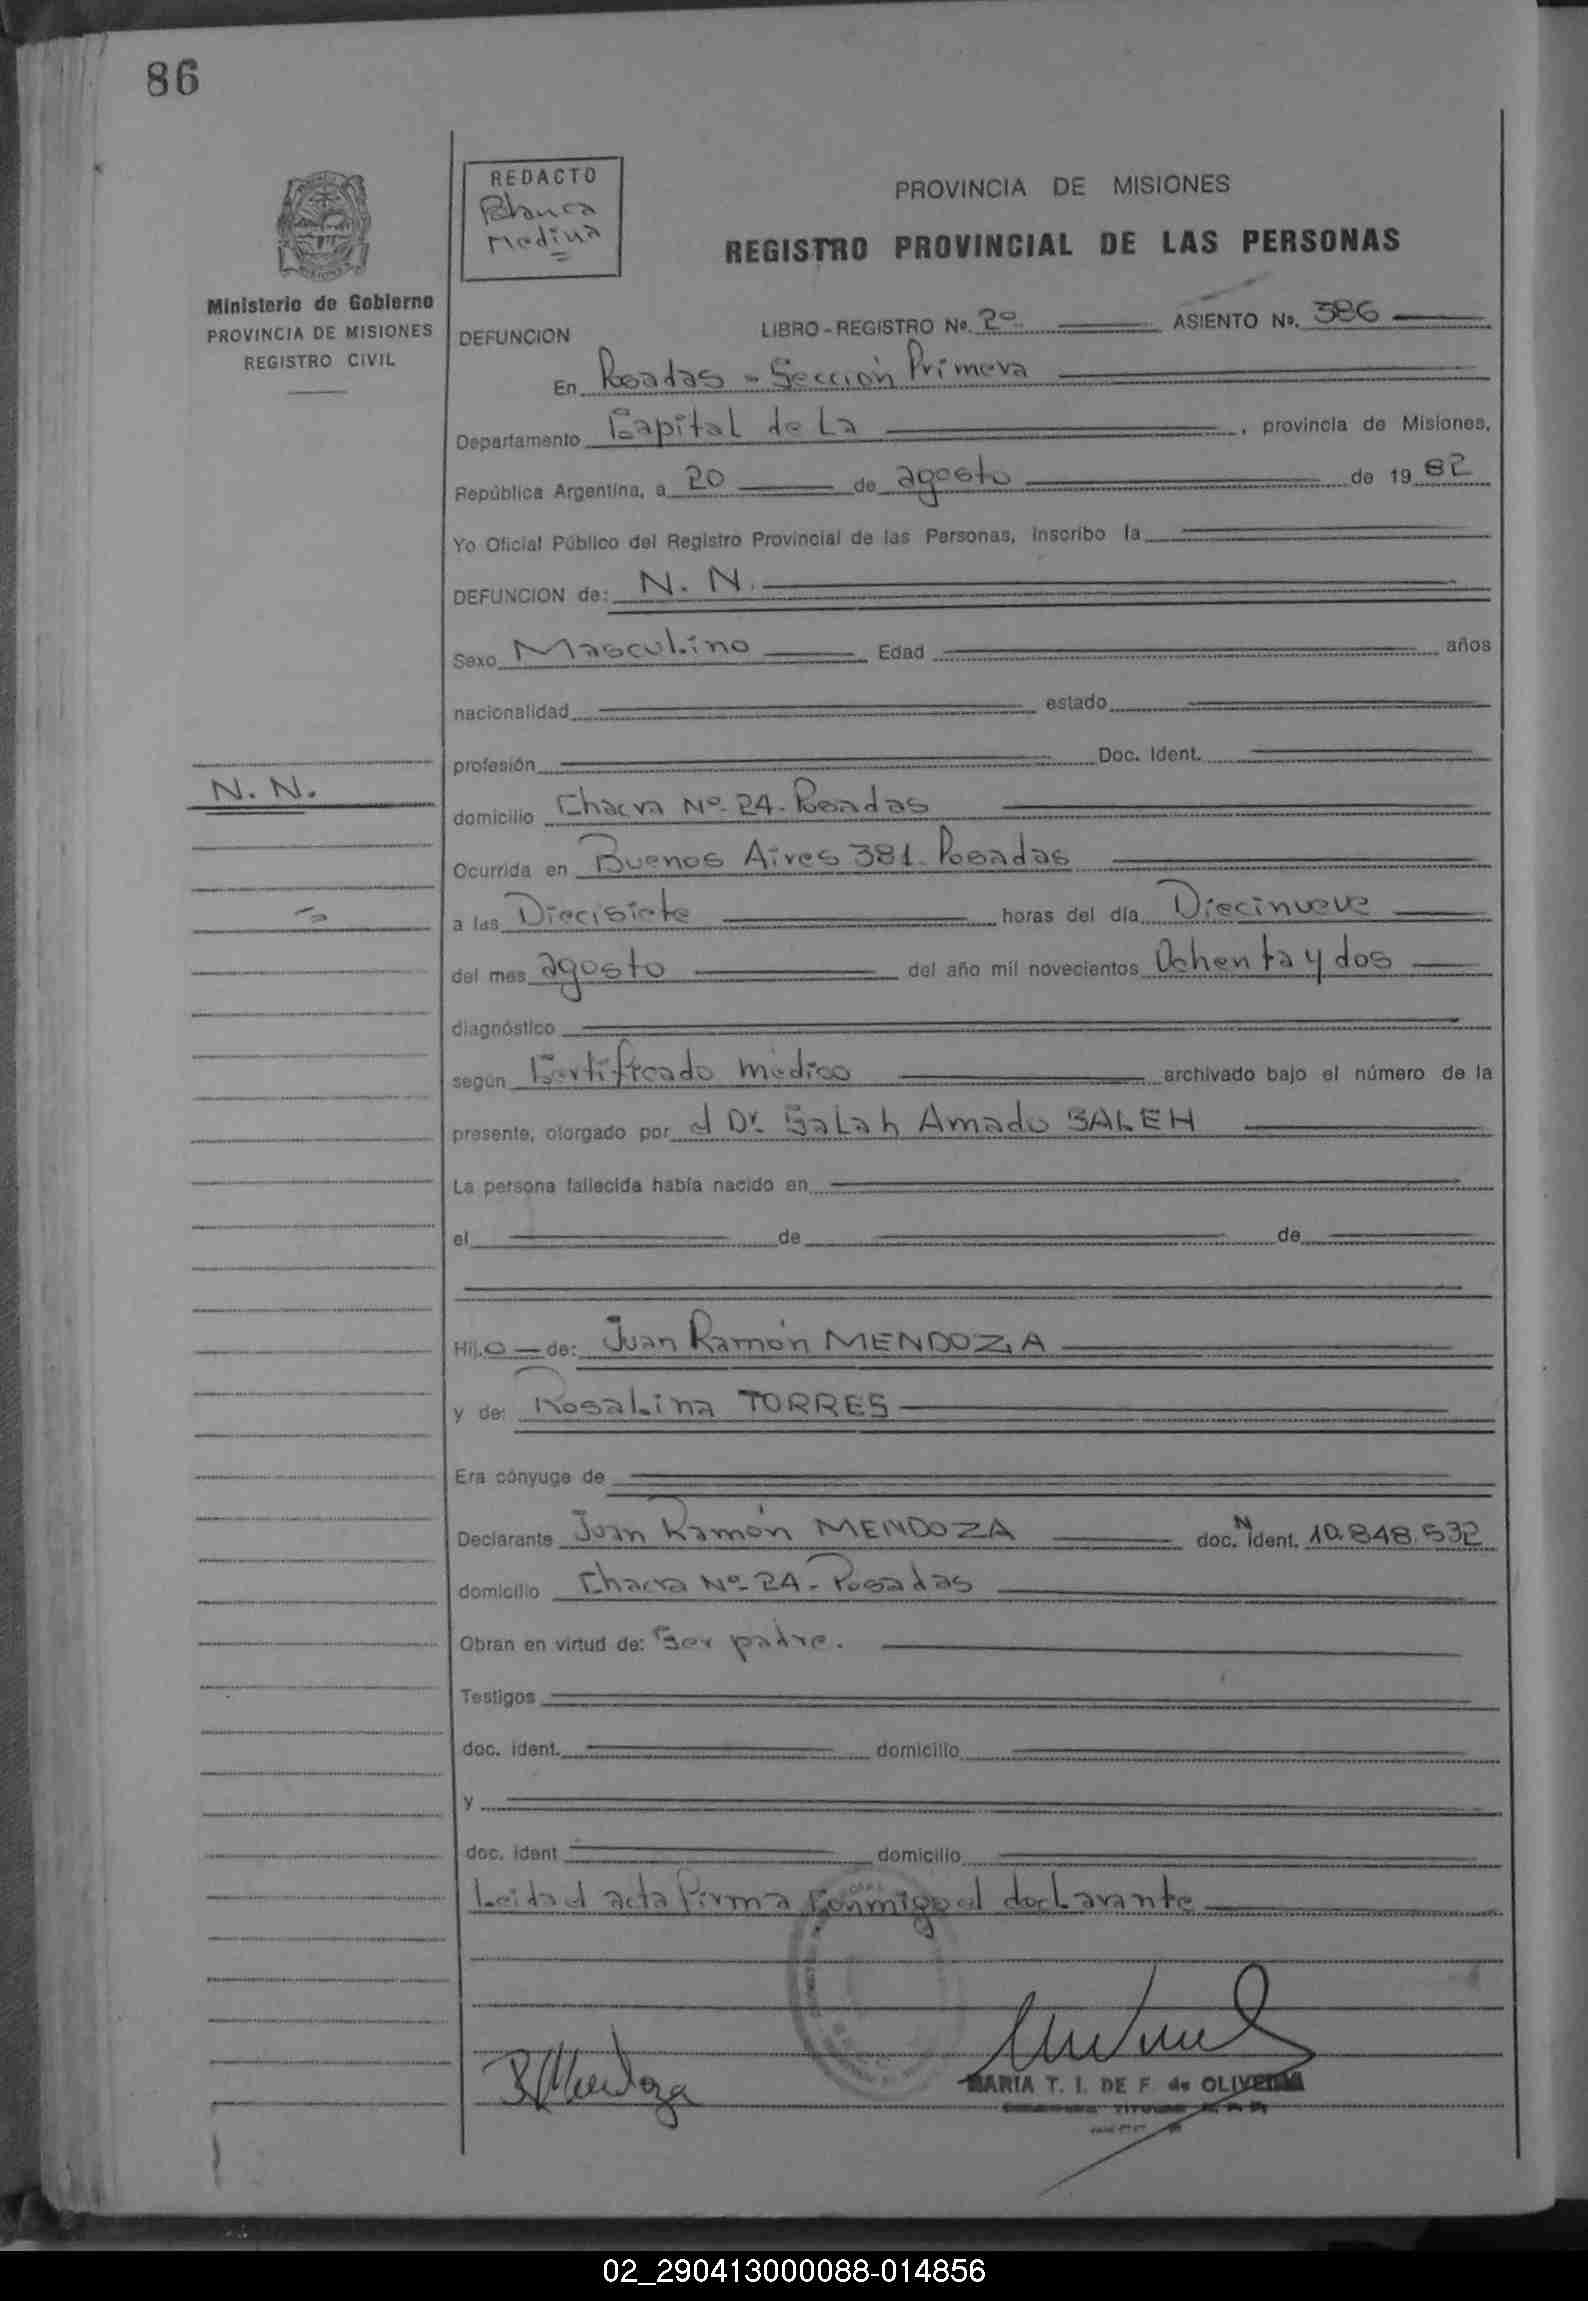 86
REDACTO
Blanca
Medina
Ministerio de Gobierno
PROVINCIA DE MISIONES
REGISTRO CIVIL
PROVINCIA DE MISIONES
REGISTRO PROVINCIAL DE LAS PERSONAS
DEFUNCION LIBRO-REGISTRO Nº. 2º ASIENTO Nº. 386
En Posadas - Sección Primera
Departamento Capital de La , provincia de Misiones,
República Argentina, a 20 de agosto de 19 82
Yo Oficial Público del Registro Provincial de las Personas, inscribo la
DEFUNCION de: N. N.
Sexo Masculino Edad años
nacionalidad estado
profesión Doc. Ident.
N. N.
domicilio Chacra Nº 24 - Posadas
Ocurrida en Buenos Aires 381. Posadas
a las Diecisiete horas del día Diecinueve
del mes agosto del año mil novecientos Ochenta y dos
diagnóstico
según Certificado médico archivado bajo el número de la
presente, otorgado por el Dr. Salah Amado SALEH
La persona fallecida había nacido en
el de de
Hij o de: Juan Ramón MENDOZA
y de: Rosalina TORRES
Era cónyuge de
Declarante Juan Ramón MENDOZA doc. N ident. 10.848.532
domicilio Chacra Nº 24 - Posadas
Obran en virtud de: Ser padre.
Testigos
doc. ident. domicilio
y
doc. ident domicilio
Leida el acta firma conmigo el declarante
Mendoza
MARIA T. I. DE F. de OLIVEIRA
02_290413000088-014856